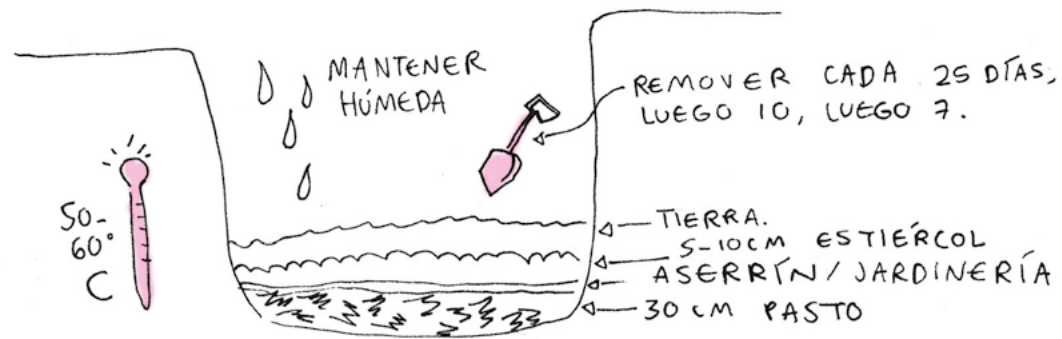 MANTENER
HÚMEDA
REMOVER CADA 25 DÍAS,
LUEGO 10, LUEGO 7.
50-
60°
C
TIERRA.
5-10CM ESTIÉRCOL
ASERRÍN/JARDINERÍA
30 CM PASTO